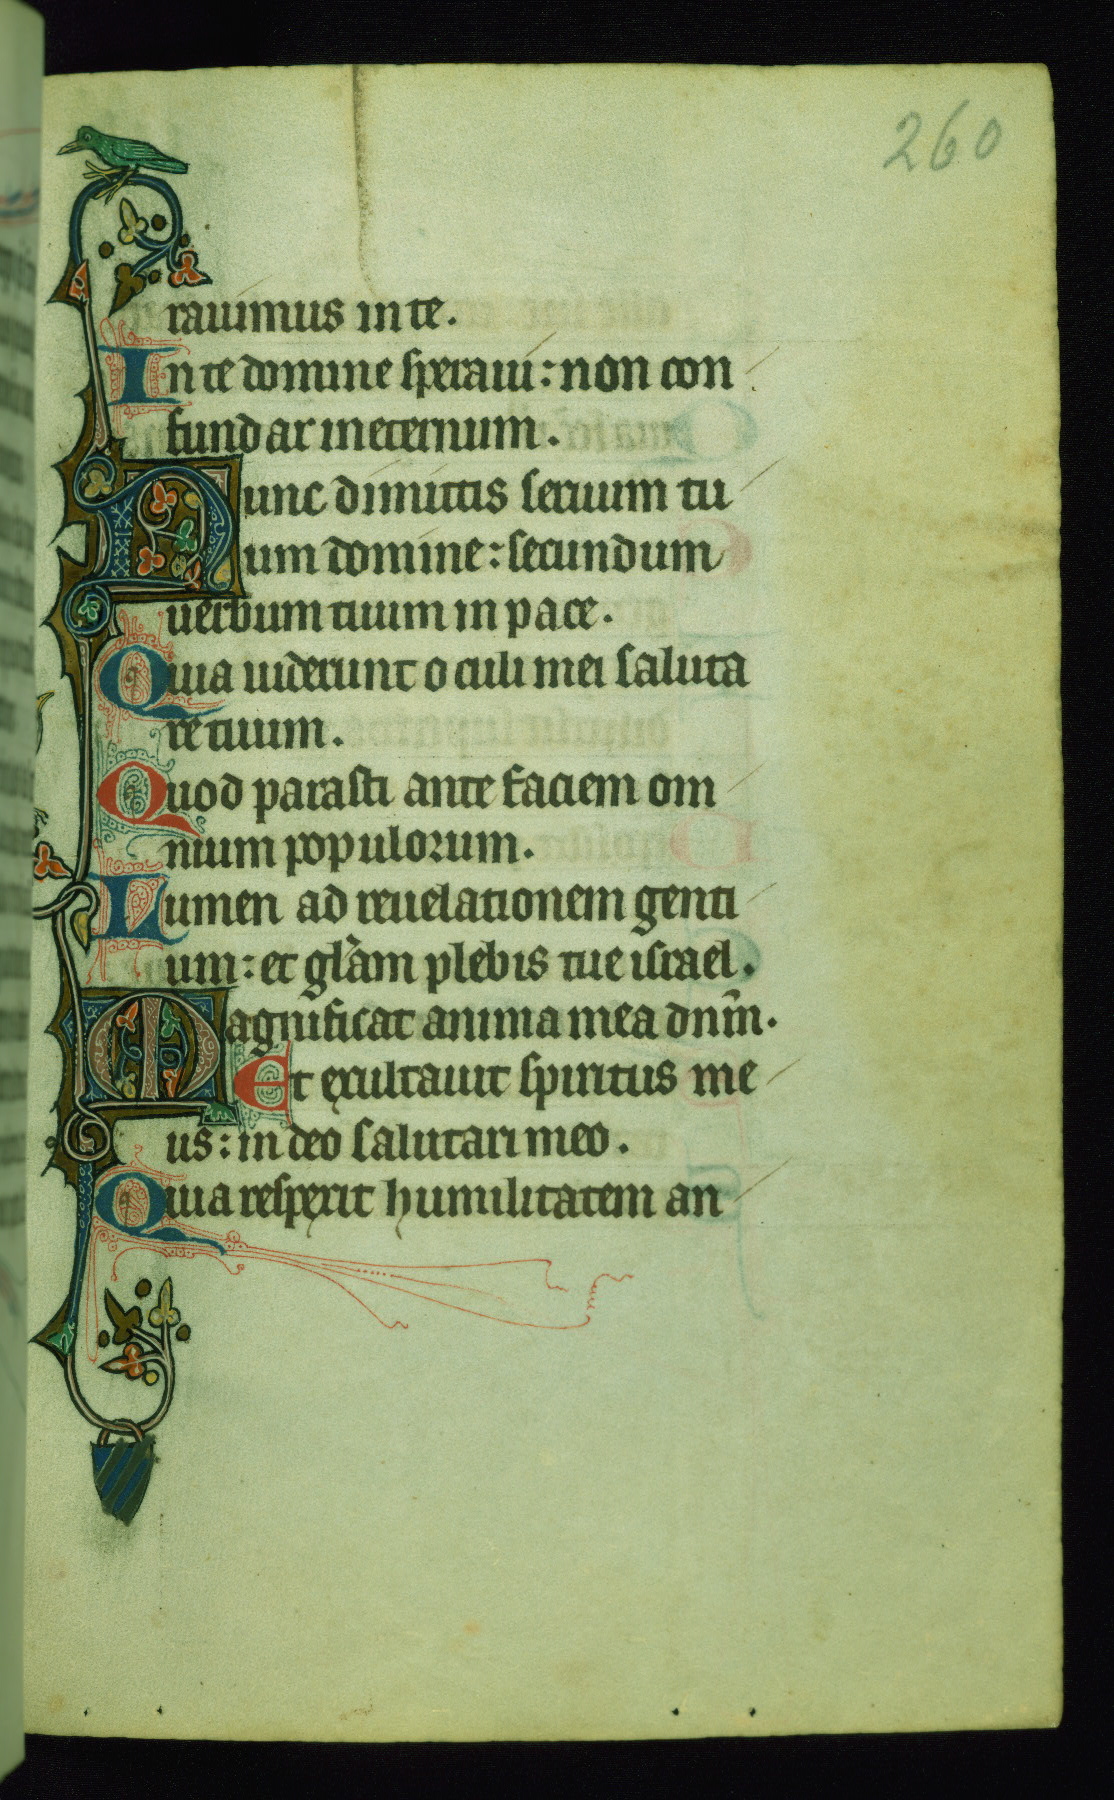 260
rauimus in te.
In te domine speraui: non con
fundar in eternum.
Nunc dimittis seruum tu
um domine: secundum
uerbum tuum in pace.
Quia uiderunt oculi mei saluta
re tuum.
Quod parasti ante faciem om
nium populorum.
Lumen ad reuelationem genti
um: et gl̃am plebis tue israel.
Magnificat anima mea dnm̃.
Et exultauit spiritus me
us: in deo salutari meo.
Quia respexit humilitatem an